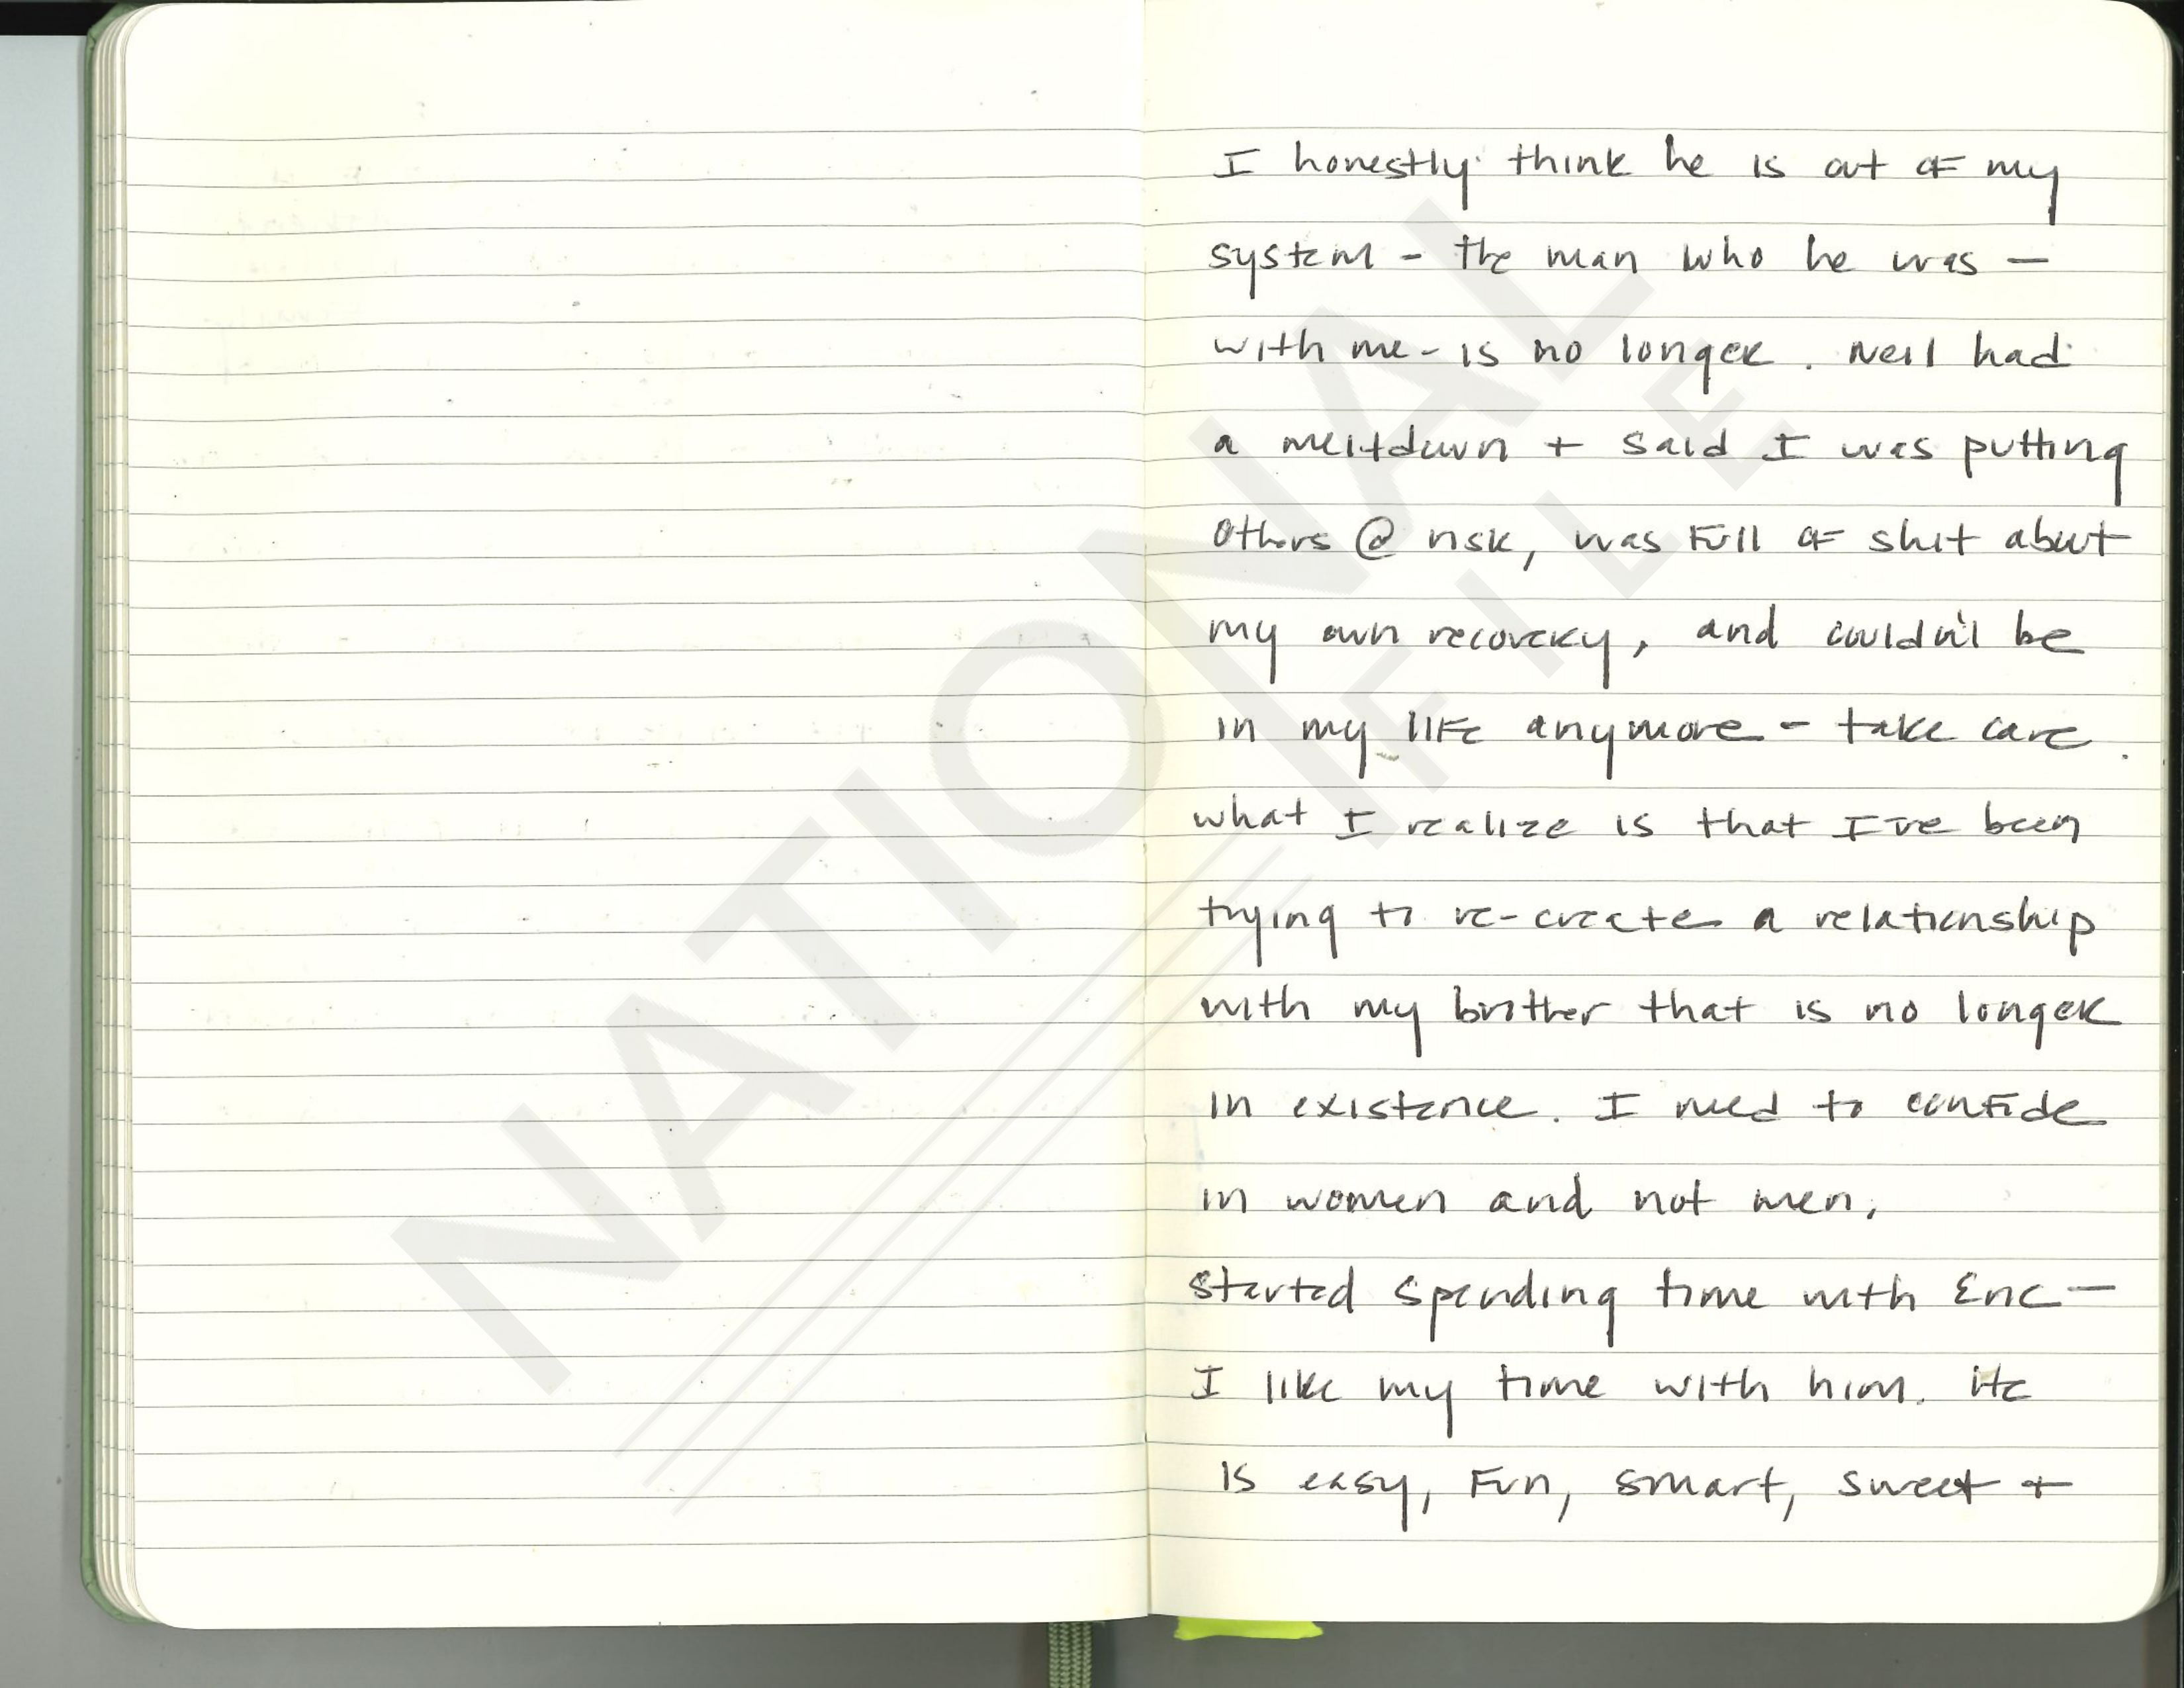 I honestly think he is out of my
system - the man who he was -
with me - is no longer. Neil had
a meltdown + said I was putting
others @ risk, was full of shit about
my own recovery, and couldn't be
in my life anymore - take care.
what I realize is that I've been
trying to re-create a relationship
with my brother that is no longer
in existence. I need to confide
in women and not men.
started spending time with Eric -
I like my time with him. He
is easy, fun, smart, sweet +
NATIONAL
FILE